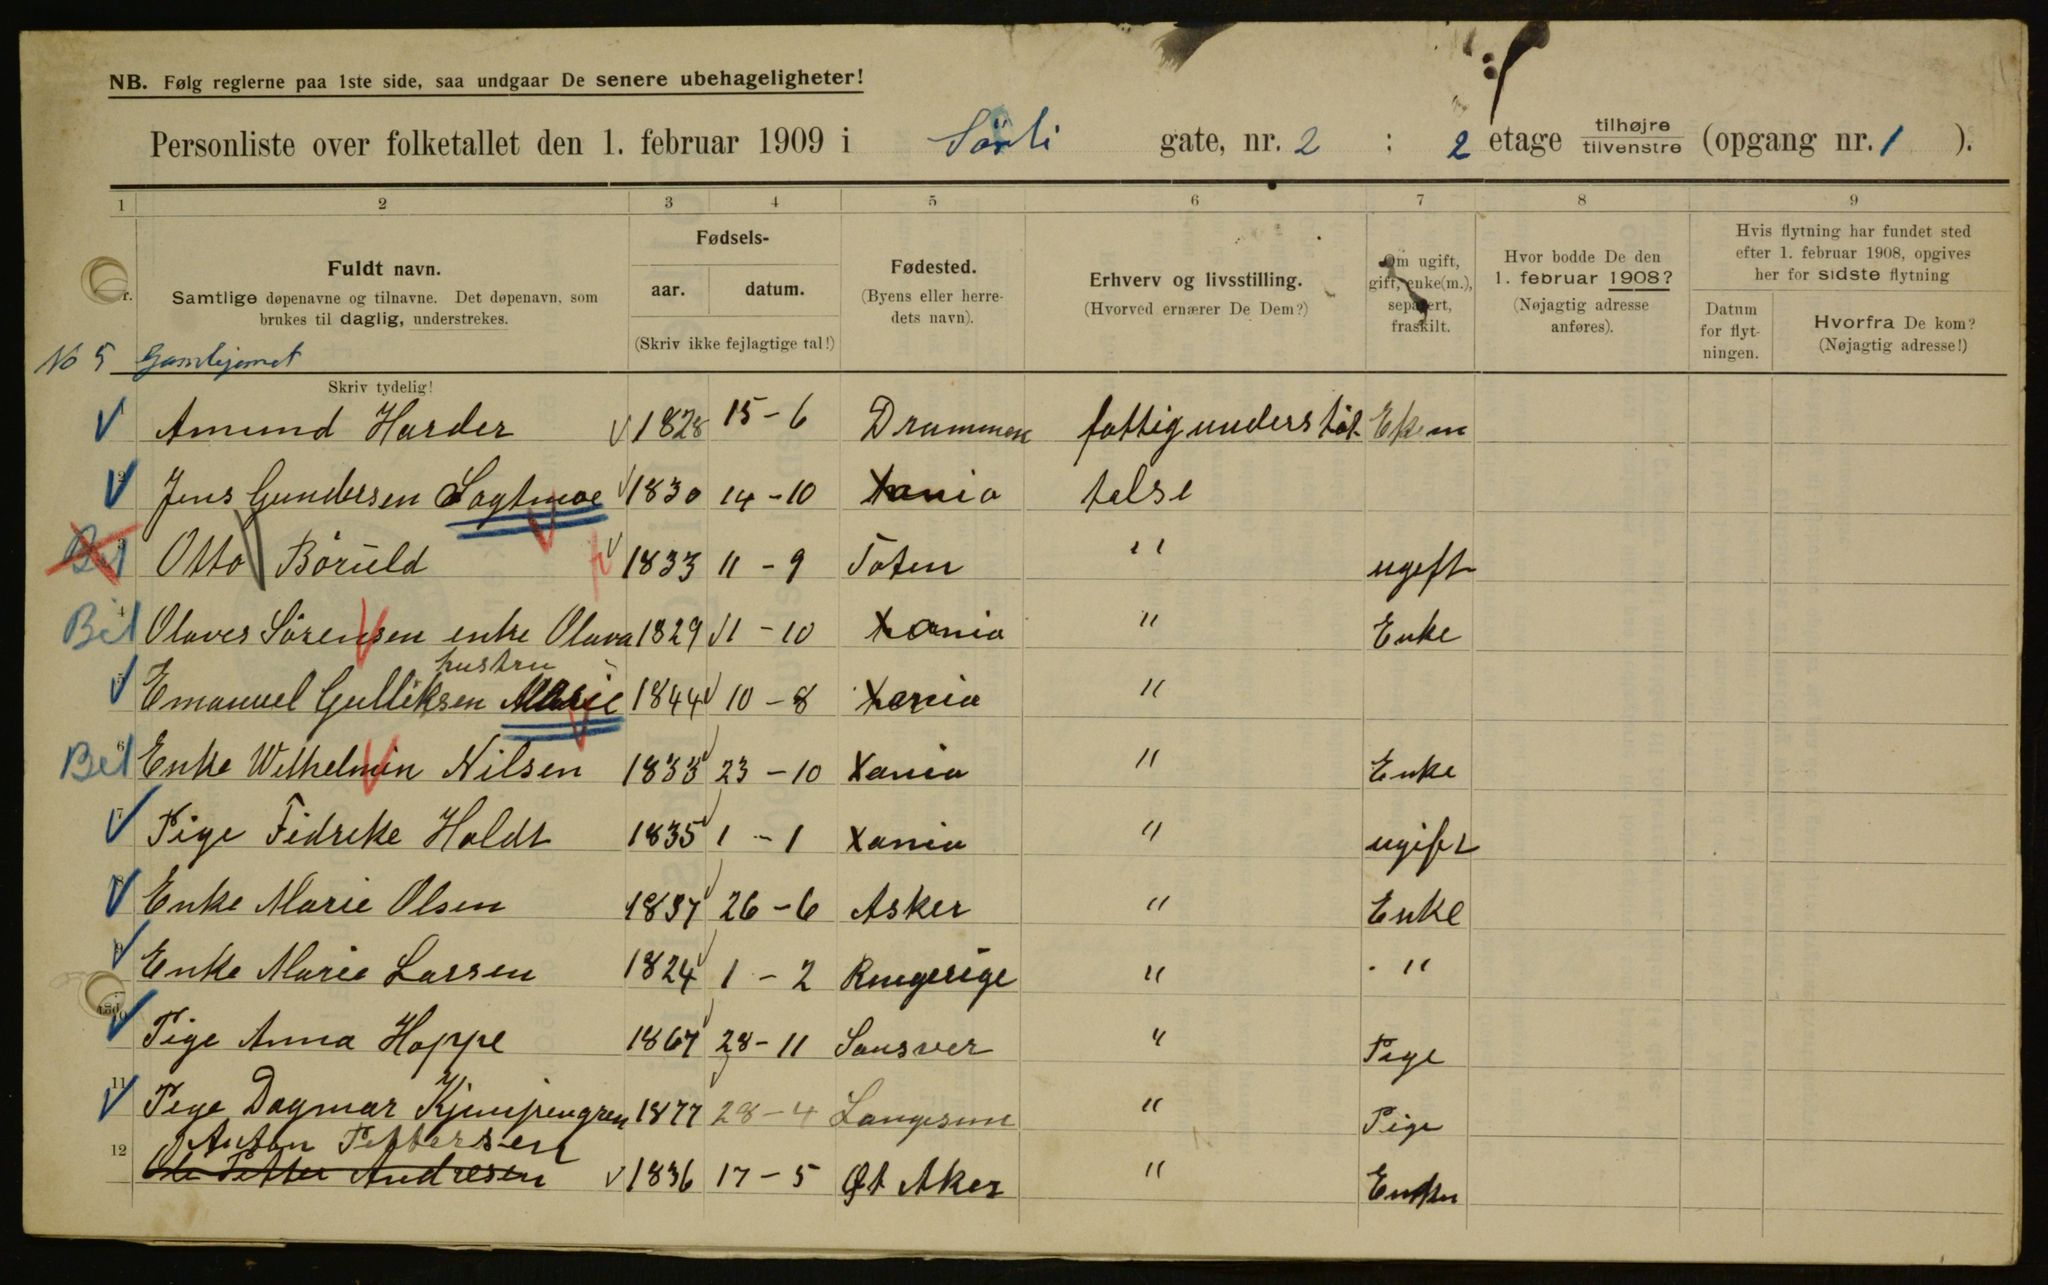 NB. Følg reglerne paa 1ste side, saa undgaar De senere ubehageligheter!
Personliste over folketallet den 1. februar 1909 i Sörli gate, nr. 2 : 2 etage tilhøjre tilvenstre (opgang nr. 1 ).
1 2 3 4 5 6 7 8 9
Fuldt navn.
Samtlige døpenavne og tilnavne. Det døpenavn, som
brukes til daglig, understrekes.
Skriv tydelig!
Fødsels-
aar. datum.
(Skriv ikke fejlagtige tal!)
Fødested.
(Byens eller herre-
dets navn).
Erhverv og livsstilling.
(Hvorved ernærer De Dem?)
Om ugift,
gift, enke(m.),
separert,
fraskilt.
Hvor bodde De den
1. februar 1908?
(Nøjagtig adresse
anføres).
Hvis flytning har fundet sted
efter 1. februar 1908, opgives
her for sidste flytning
Datum
for flyt-
ningen.
Hvorfra De kom?
(Nøjagtig adresse!)
No 5 Gamlejemet
Amund Harder 1828 15-6 Drammen fattigunderstøt Ekem
2 Jens Gundersen Sagtmoe 1830 14-10 Xania telse
3 Otto Böruld 1833 11-9 Toten " ugift
Bet 4 Olaves Sörensen enke Olava 1829 11-10 Xania " Enke
hustru
5 Emanuel Gulliksen Marie 1844 10-8 Xania "
Bet 6 Enke Wilhelmin Nilsen 1833 23-10 Xania " Enke
7 Pige Fidreke Holdt 1835 1-1 Xania " ugift
8 Enke Marie Olsen 1837 26-6 Asker " Enke
9 Enke Marie Larsen 1824 1-2 Ringerige " "
10 Pige Anna Hoppe 1867 28-11 Sansver " Pige
11 Pige Dagmar 1877 28-4 Langesun " Pige
Anton Pettersen
12 Ole Petter Andresen 1836 17-5 Øt Aker "